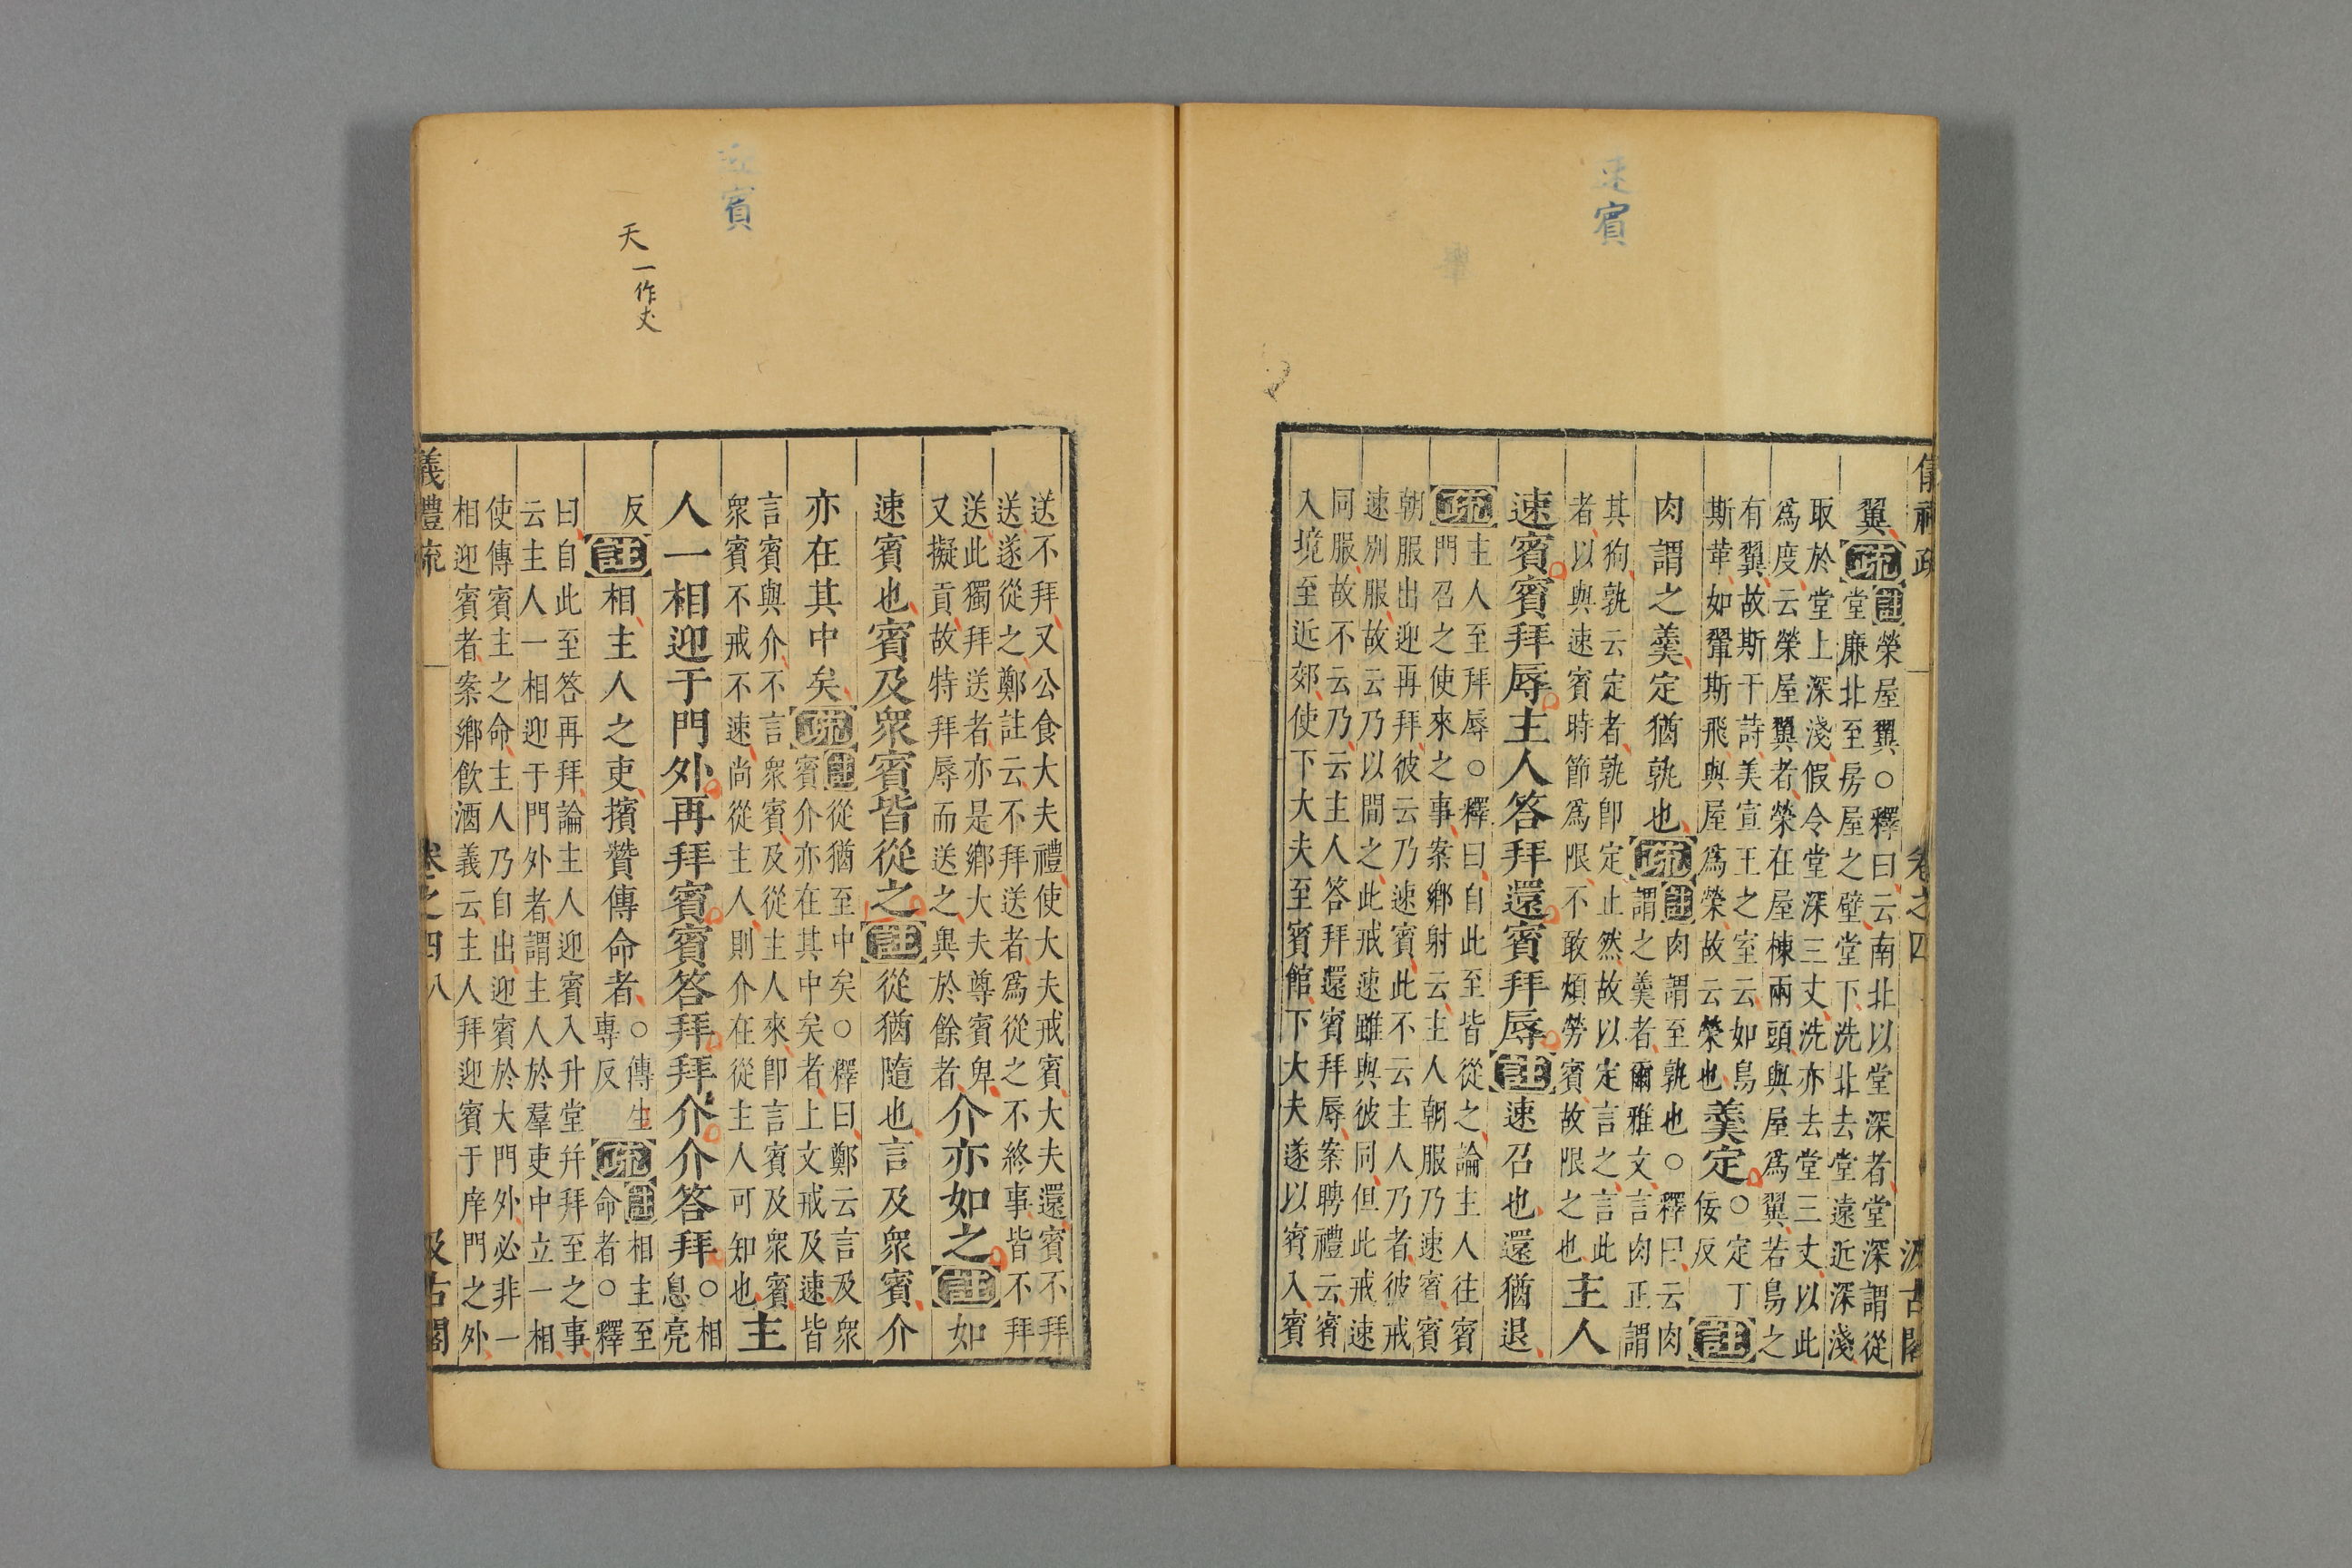 速賓
儀禮疏 卷之四 汲古閣
翼疏註榮屋翼○釋曰云南北以堂深者堂深謂從
堂廉北至房屋之壁堂下洗北去堂遠近深淺
取於堂上深淺假令堂深三丈洗亦去堂三丈以此
爲度云榮屋翼者榮在屋棟兩頭與屋爲翼若鳥之
有翼故斯干詩美宣王之室云如鳥
斯革如翬斯飛與屋爲榮故云榮也羹定○定丁
佞反註
肉謂之羹定猶孰也疏註肉謂至孰也○釋曰云肉
謂之羹者爾雅文言肉正謂
其狗孰云定者孰卽定止然故以定言之言此
者以與速賓時節爲限不敢煩勞賓故限之也主人
速賓賓拜辱主人答拜還賓拜辱註速召也還猶退
疏主人至拜辱○釋曰自此至皆從之論主人往賓
門召之使來之事案鄉射云主人朝服乃速賓賓
朝服出迎再拜彼云乃速賓此不云主人乃者彼戒
速別服故云乃以間之此戒速雖與彼同但此戒速
同服故不云乃云主人答拜還賓拜辱案聘禮云賓
入境至近郊使下大夫至賓館下大夫遂以賓入賓
迎賓
天一作丈
送不拜又公食大夫禮使大夫戒賓大夫還賓不拜
送遂從之鄭註云不拜送者爲從之不終事皆不拜
送此獨拜送者亦是鄉大夫尊賓卑
又擬貢故特拜辱而送之與於餘者介亦如之註如
速賓也賓及衆賓皆從之註從猶隨也言及衆賓介
亦在其中矣疏註從猶至中矣○釋曰鄭云言及衆
賓介亦在其中矣者上文戒及速皆
言賓與介不言衆賓及從主人來卽言賓及衆賓
衆賓不戒不速尚從主人則介在從主人可知也主
人一相迎于門外再拜賓賓答拜拜介介答拜○相
息亮
反註相主人之吏擯贊傳命者○傳生
專反疏註相主至
命者○釋
曰自此至答再拜論主人迎賓入升堂幷拜至之事
云主人一相迎于門外者謂主人於羣吏中立一相
使傳賓主之命主人乃自出迎賓於大門外必非一
相迎賓者案鄉飲酒義云主人拜迎賓于庠門之外
儀禮疏 卷之四 八 汲古閣